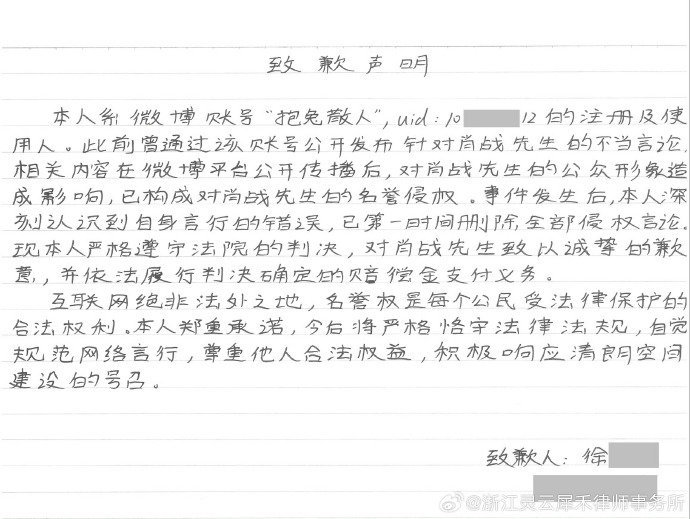 致歉声明
本人系微博账号“抱兔散人”，uid：10 12的注册及使
用人。此前曾通过该账号公开发布针对肖战先生的不当言论，
相关内容在微博平台公开传播后，对肖战先生的公众形象造
成影响，已构成对肖战先生的名誉侵权。事件发生后，本人深
刻认识到自身言行的错误，已第一时间删除全部侵权言论。
现本人严格遵守法院的判决，对肖战先生致以诚挚的歉
意，并依法履行判决确定的赔偿金支付义务。
互联网绝非法外之地，名誉权是每个公民受法律保护的
合法权利。本人郑重承诺，今后将严格恪守法律法规，自觉
规范网络言行，尊重他人合法权益，积极响应清朗空间
建设的号召。
致歉人：徐
@浙江灵云犀禾律师事务所